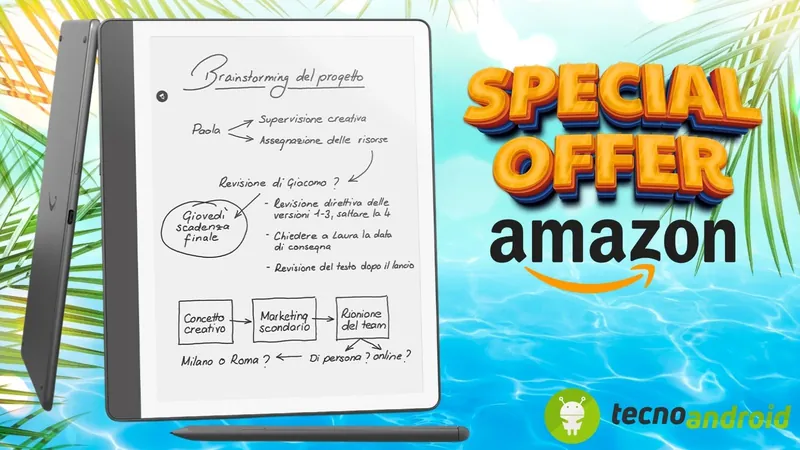 Brainstorming del progetto
Paola
Supervisione creativa
Assegnazione delle risorse
Revisione di Giacomo ?
Giovedì
scadenza
finale
- Revisione direttiva delle
versioni 1-3, saltare la 4
- Chiedere a Laura la data
di consegna
- Revisione del testo dopo il lancio
Concetto
creativo
Marketing
scondario
Rionione
del team
Milano o Roma ?
Di persona ? online ?
SPECIAL
OFFER
amazon
tecnoandroid